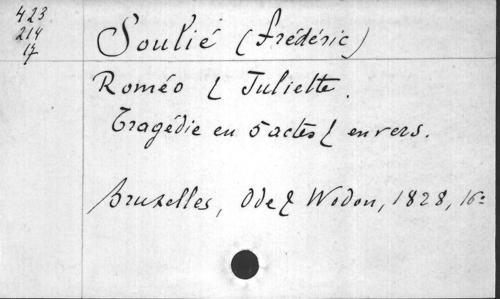 423
214
17
Soulié (Frédéric)
Roméo & Juliette.
Tragédie en 5 actes & en vers.
Bruxelles, Ode & Wodon, 1828, 16º